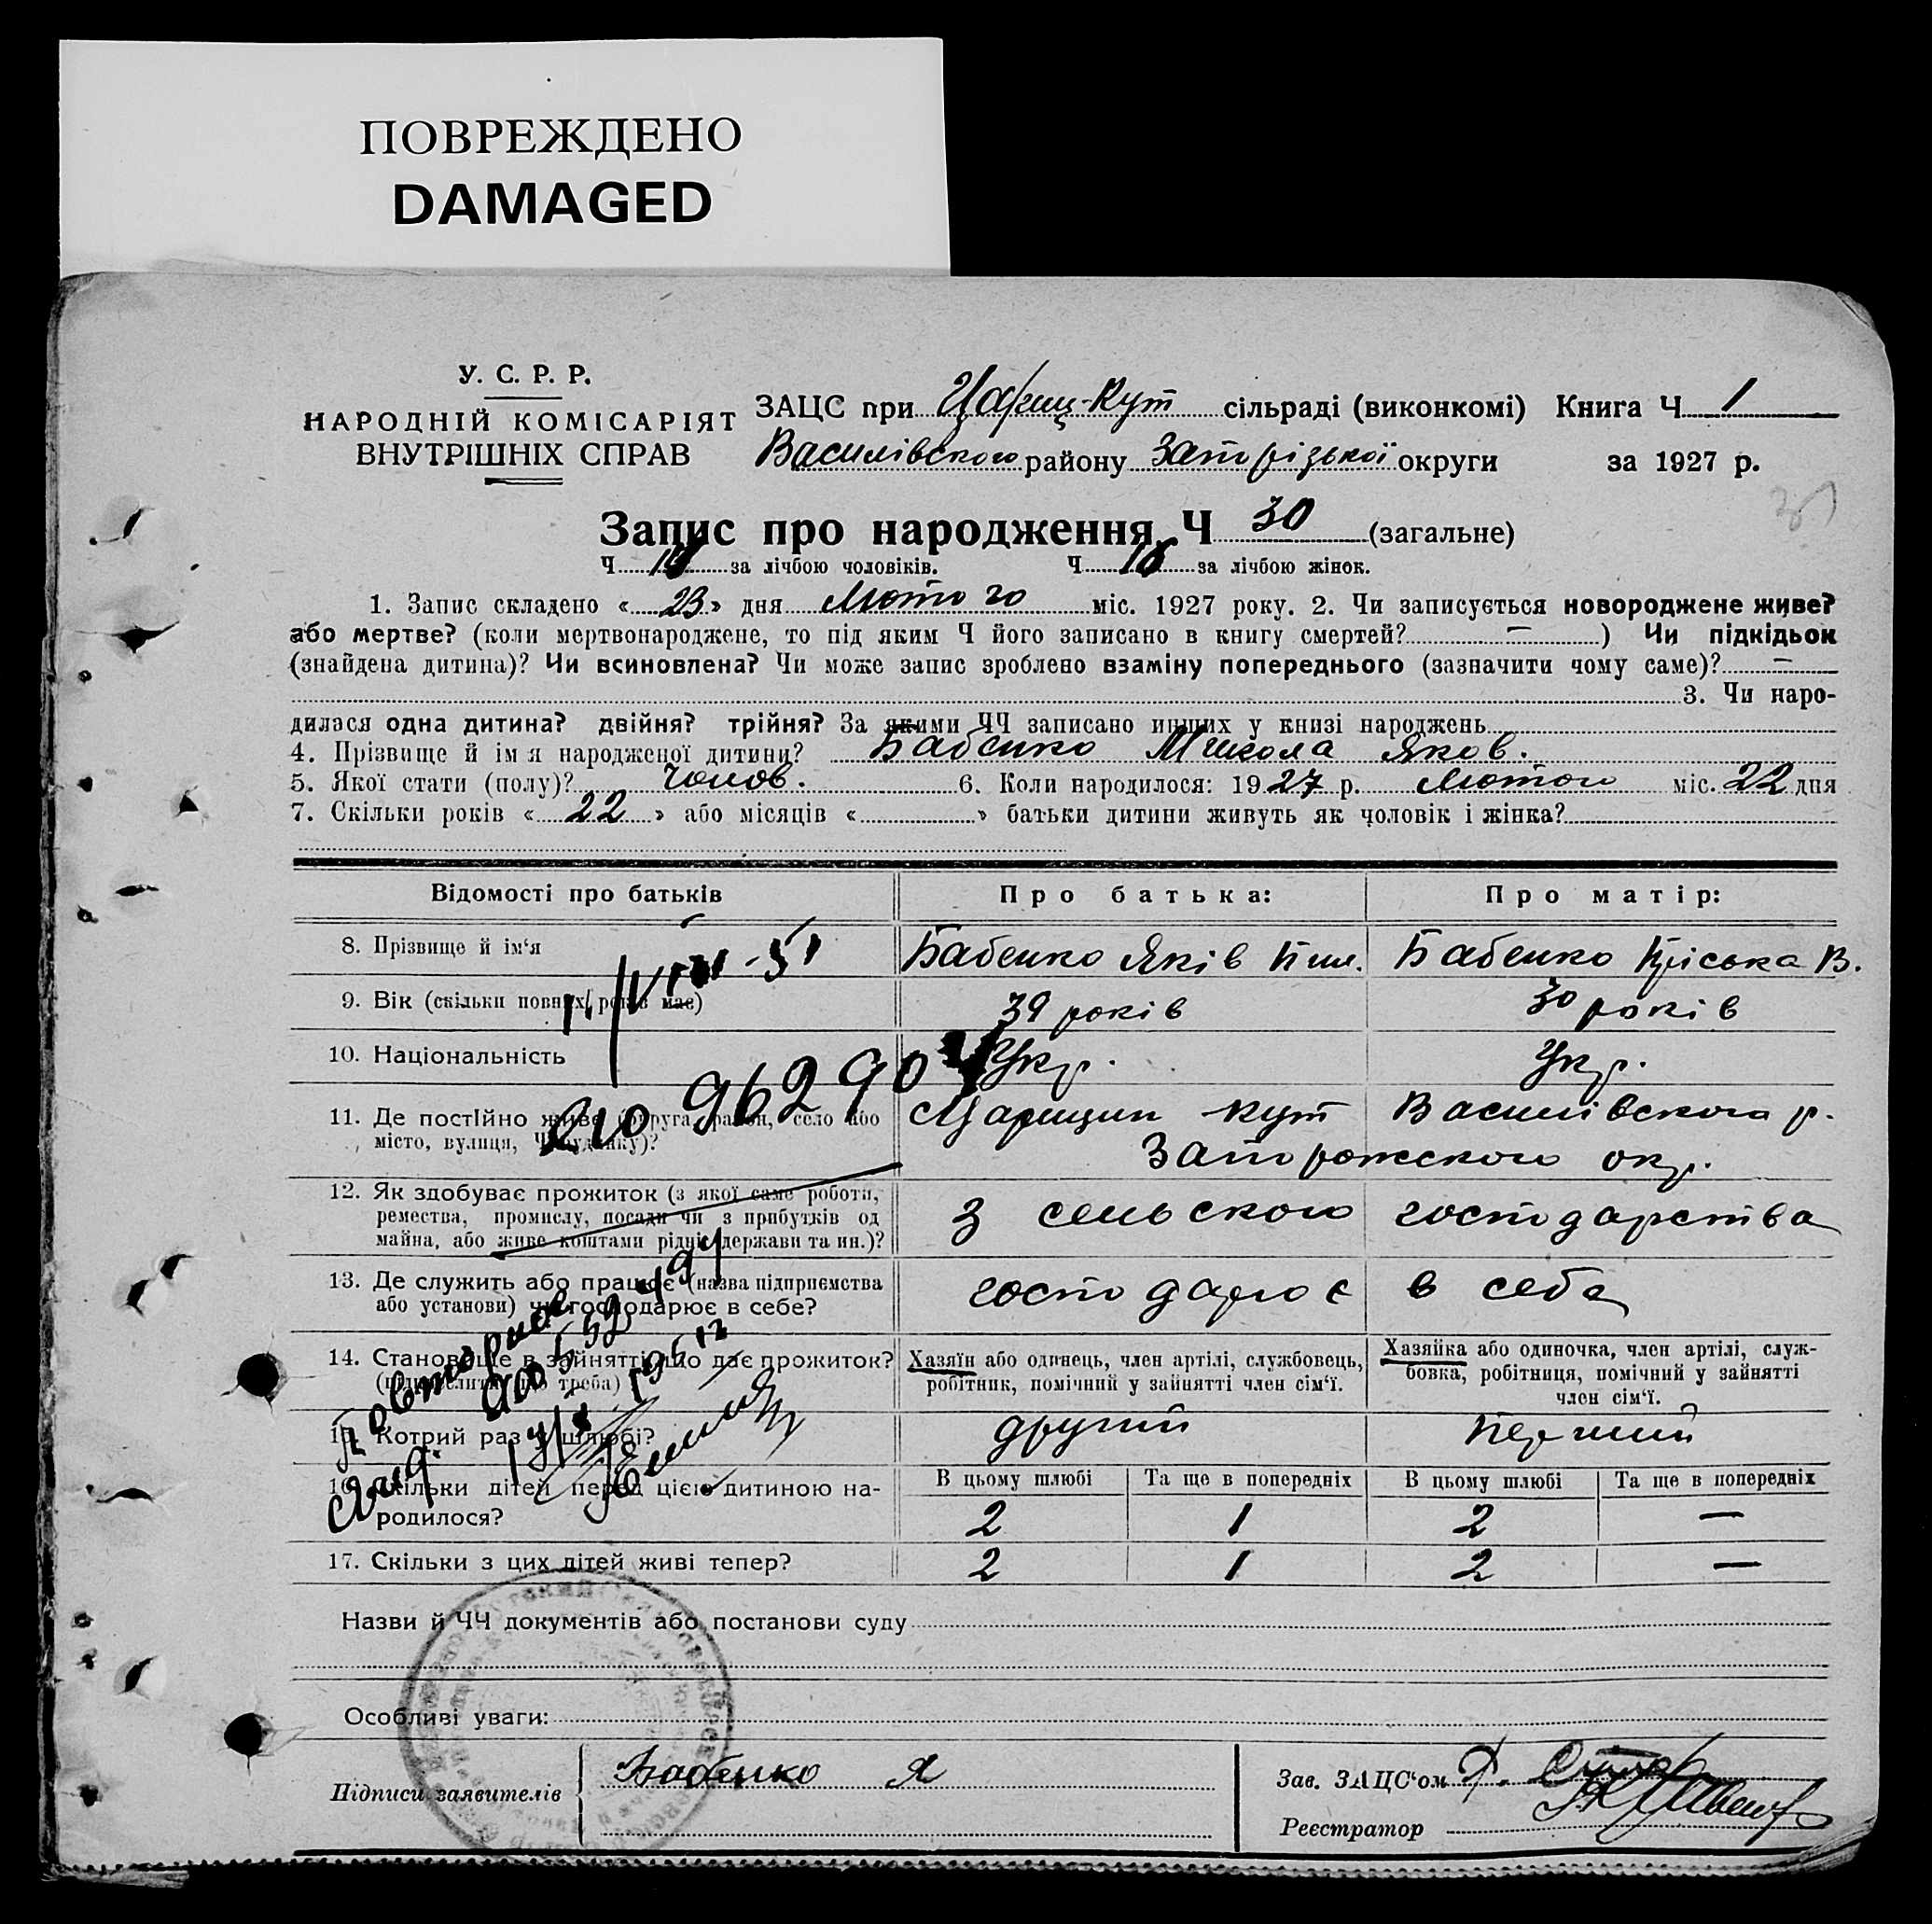 ПОВРЕЖДЕНО
DAMAGED
У. С. Р. Р.
НАРОДНІЙ КОМІСАРІЯТ
ВНУТРІШНІХ СПРАВ
ЗАЦС при Цариц-Кут сільраді (виконкомі) Книга Ч 1
Василівского району Запорізької округи за 1927 р.
Запис про народження Ч 30 (загальне)
Ч за лічбою чоловіків. Ч 16 за лічбою жінок.
1. Запис складено « 23 » дня Лютого міс. 1927 року. 2. Чи записується новороджене живе?
або мертве? (коли мертвонароджене, то під яким Ч його записано в книгу смертей? — ) Чи підкідьок
(знайдена дитина)? Чи всиновлена? Чи може запис зроблено взаміну попереднього (зазначити чому саме)? —
3. Чи наро-
дилася одна дитина? двійня? трійня? За якими ЧЧ записано инших у книзі народжень
4. Прізвище й ім я народженої дитини? Бабенко Микола Яков.
5. Якої стати (полу)? чолов. 6. Коли народилося: 1927 р. Лютого міс. 22 дня
7. Скільки років « 22 » або місяців « » батьки дитини живуть як чоловік і жінка?
Відомості про батьків Про батька: Про матір:
8. Прізвище й ім‘я Бабенко Яків Пил. Бабенко Пріська В.
9. Вік (скільки повних років має) 39 років 30 років
10. Національність Укр. Укр.
962904
11. Де постійно живе (округа, район, село або Царицин Кут Василівского р.
місто, вулиця, Ч будинку)? Запорожского окр.
12. Як здобуває прожиток (з якої саме роботи, З сельского господарства
ремества, промислу, посади чи з прибутків од
майна, або живе коштами рідні, держави та ин.)?
13. Де служить або працює (назва підприємства господарює в себе
або установи) чи господарює в себе?
14. Становище в зайнятті, що дає прожиток? Хазяїн або одинець, член артілі, службовець, Хазяйка або одиночка, член артілі, служ-
(підкреслити що треба) робітник, помічний у зайнятті член сім‘ї. бовка, робітниця, помічний у зайнятті
член сім‘ї.
Повторне
15. Котрий раз у шлюбі? другий перший
16. Скільки дітей перед цією дитиною на- В цьому шлюбі Та ще в попередніх В цьому шлюбі Та ще в попередніх
родилося? 2 1 2 —
17. Скільки з цих дітей живі тепер? 2 1 2 —
Назви й ЧЧ документів або постанови суду
Особливі уваги:
Підписи заявителів Бабенко Я Зав. ЗАЦС‘ом
Реєстратор